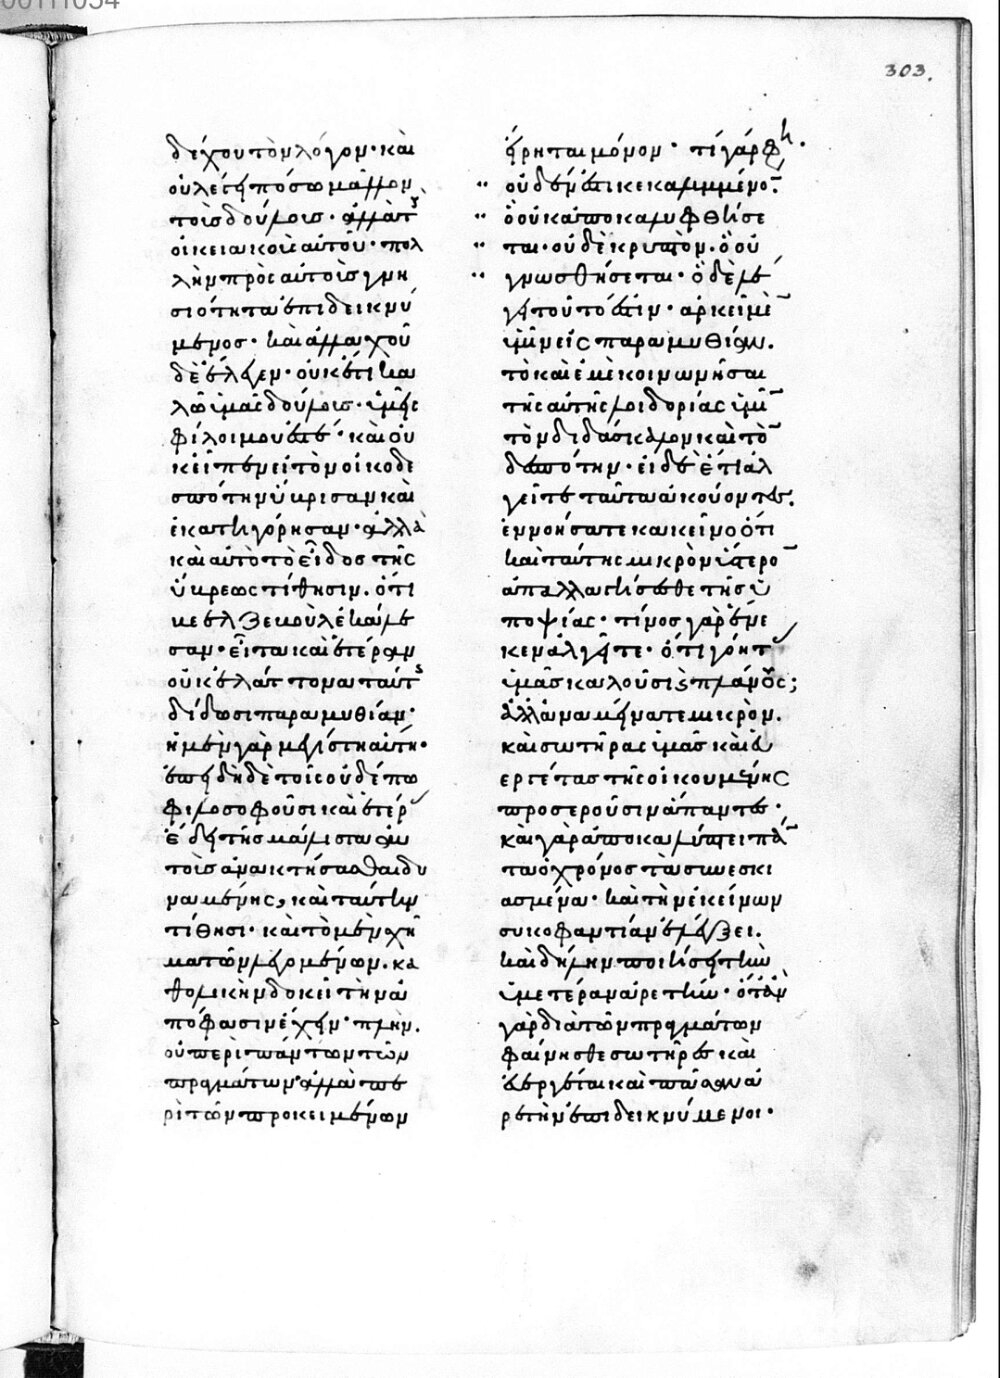 303.
δέχου τὸν λόγον· καὶ
οὐ λέγει πόσω μᾶλλον
τοῖς δούλοις· ἀλλὰ τ
οἰκειακοὺς αὐτοῦ· πολ
λὴν πρὸς αὐτοὺς γνη
σιότητα ἐπιδεικνύ
μενος· καὶ ἀλλαχοῦ
δὲ ἔλεγεν· οὐκέτι κα
λῶ ὑμᾶς δούλους· ὑμεῖς
φίλοι μου ἐστέ· καὶ οὐ
κ εἶπεν εἰ τὸν οἰκοδε
σπότην ὕβρισαν καὶ
ἐκατηγόρησαν· ἀλλὰ
καὶ αὐτὸ τὸ εἶδος τῆς
ὕβρεως τίθησιν. ὅτι
βεελζεβοὺλ ἐκάλε
σαν· εἶτα καὶ ἑτέραν
οὐκ ἐλάττονα ταύτ
δίδωσι παραμυθίαν·
ἡ μὲν γὰρ μεγίστη αὕτη·
ἐπειδὴ δὲ τοῖς οὐδέπω
φιλοσοφοῦσι καὶ ἑτέρ
ἔδει τῆς μάλιστα αὐ
τοὺς ἀνακτήσασθαι δυ
ναμένης, καὶ ταύτην
τίθησι· καὶ τὸ μὲν σχῆ
μα τῶν λεγομένων. κα
θολικὴν δοκεῖ τὴν ἀ
πόφασιν ἔχειν· πλὴν.
οὐ περὶ πάντων τῶν
πραγμάτων· ἀλλὰ πε
ρὶ τῶν προκειμένων
εἴρηται μόνον· τί γάρ φη·
οὐδέν ἐστι κεκαλυμμένο̅.
ὃ οὐκ ἀποκαλυφθήσε
ται· οὐδὲ κρυπτὸν. ὃ οὐ
γνωσθήσεται· ὃ δὲ λέ
γει τοῦτό ἐστιν· ἀρκεῖ μὲ̅
ὑμῖν εἰς παραμυθίαν.
τὸ καὶ ἐμὲ κοινωνῆσαι
τῆς αὐτῆς λοιδορίας ὑμῖ̅
τὸν διδάσκαλον καὶ τὸ̅
δεσπότην· εἰ δὲ ἔτι ἀλ
γεῖτε ταῦτα ἀκούοντες.
ἐννοήσατε κἀκεῖνο ὅτι
καὶ ταύτης μικρὸν ὕστερο̅
ἀπαλλαγήσεσθε τῆς ὑ
ποψίας· τίνος γὰρ ἕνε
κεν ἀλγεῖτε· ὅτι γόητ
ὑμᾶς καλοῦσι καὶ πλάνους;
ἀλλ' ἀναμείνατε μικρὸν.
καὶ σωτῆρας ὑμᾶς καὶ εὐ
εργέτας τῆς οἰκουμένης
προσεροῦσιν ἅπαντες·
καὶ γὰρ ἀποκαλύπτει πά̅
τα ὁ χρόνος τὰ συνεσκι
ασμένα· καὶ τὴν ἐκείνων
συκοφαντίαν ἐλέγξει.
καὶ δήλην ποιήσει τὴν
ὑμετέραν ἀρετήν· ὅταν
γὰρ διὰ τῶν πραγμάτων
φαίνησθε σωτῆρες καὶ
εὐεργέται καὶ πᾶσαν ἀ
ρετὴν ἐπιδεικνύμενοι·